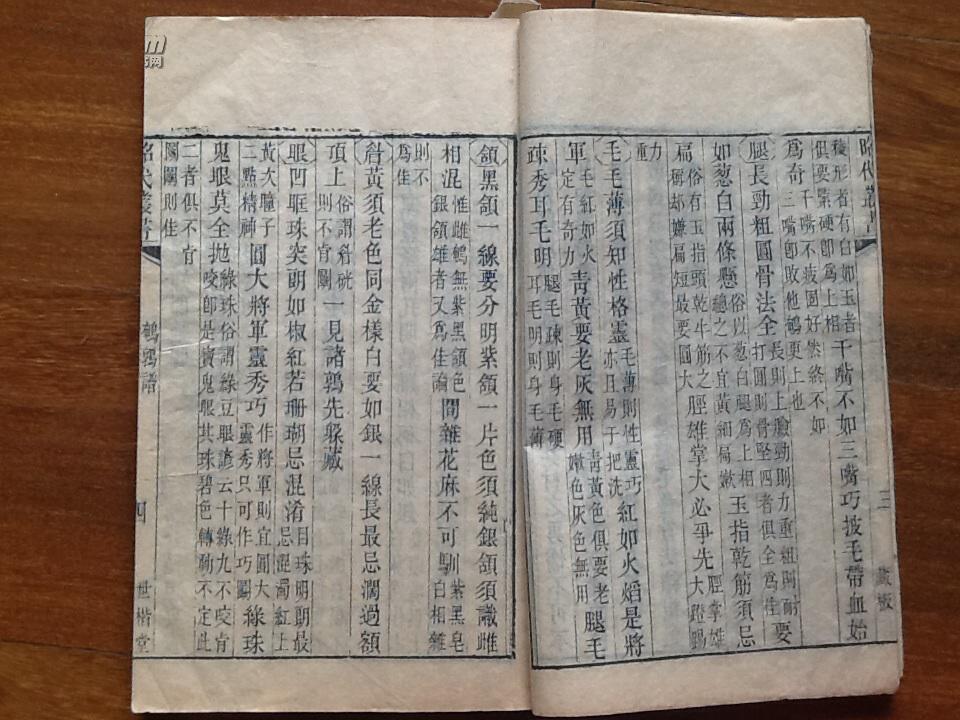 昭代叢書
三
藏板
稜形者有白如玉者
俱要緊硬卽爲上相
千嘴不如三嘴巧披毛帶血始
千嘴不披固好然終不如
爲奇
三嘴卽敗他鵪更上也
腿長勁粗圓骨法全
長則上勝勁則力重粗則耐
打圓則骨堅四者俱全爲佳
要
如葱白兩條懸
俗以葱白腿爲上相
總之不宜黃細局嫩
玉指乾筋須忌
扁
俗有玉指頭乾牛筋之
稱却嫌扁短最要圓大
脛雄掌大必爭先
脛掌雄
大蹬踢
重力
毛毛薄須知性格靈
毛薄則性靈巧
亦且易于把洗
紅如火熖是將
軍
毛紅如火
定有奇力
青黃要老灰無用
青黃色俱要老
嫩色灰色無用
腿毛
疎秀耳毛明
腿毛疎則身毛硬
耳毛明則身毛薄
頷黑頷一線要分明紫頷一片色須純銀頷須識雌
相混
惟雌鵪無紫黑頷色
銀頷雄者又爲佳論
間雜花麻不可馴
紫黑皂
白相雜
則不
爲佳
眥黃須老色同金樣白要如銀一線長最忌濶過額
頂上
俗謂科硄
則不宜鬭
一見諸鶉先躱藏
眼凹眶珠突朗如椒紅若珊瑚忌混淆
目珠明朗最
忌混濁紅上
黃次朣子
二點精神
圓大將軍靈秀巧
作將軍則宜圓大
靈秀只可作巧鬭
綠珠
鬼眼莫全拋
綠珠俗謂綠豆眼諺云十綠九不咬肯
咬卽是寶鬼眼其珠碧色轉動不定此
二者俱不宜
鬭鬭則佳
昭代叢書
鵪鶉譜
四
世楷堂